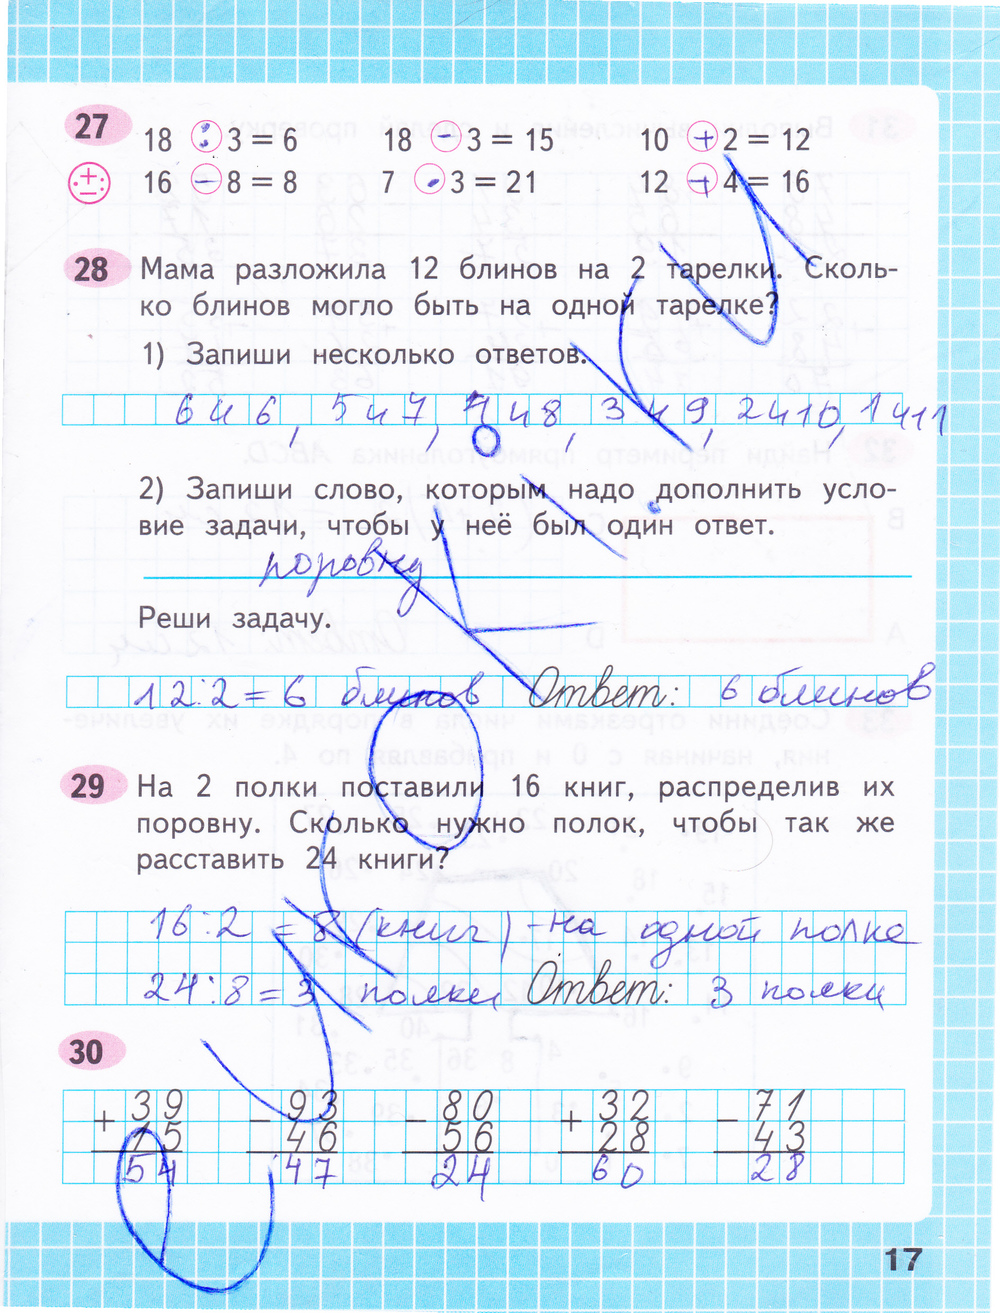 27
18 : 3 = 6 18 − 3 = 15 10 + 2 = 12
16 − 8 = 8 7 · 3 = 21 12 + 4 = 16
28 Мама разложила 12 блинов на 2 тарелки. Сколь-
ко блинов могло быть на одной тарелке?
1) Запиши несколько ответов.
6 и 6, 5 и 7, 4 и 8, 3 и 9, 2 и 10, 1 и 11
2) Запиши слово, которым надо дополнить усло-
вие задачи, чтобы у неё был один ответ.
поровну
Реши задачу.
12:2=6 блинов Ответ: 6 блинов
29 На 2 полки поставили 16 книг, распределив их
поровну. Сколько нужно полок, чтобы так же
расставить 24 книги?
16:2=8 (книг)-на одной полке
24:8=3 полки Ответ: 3 полки
30
+ 39 − 93 − 80 + 32 − 71
15 46 56 28 43
54 47 24 60 28
17